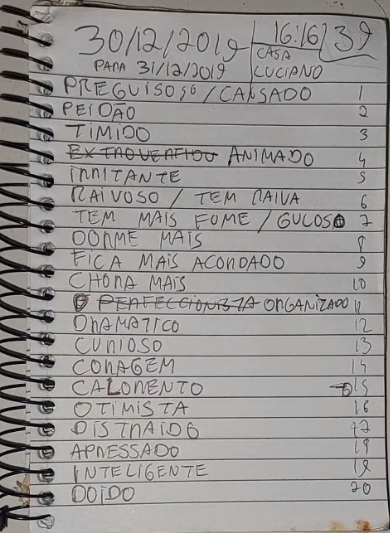 30/12/2019 16:16 39
PARA 31/12/2019 CASA LUCIANO
PREGUISOSO / CANSADO 1
PEIDÃO 2
TIMIDO 3
ANIMADO 4
IRRITANTE 5
RAIVOSO / TEM RAIVA 6
TEM MAIS FOME / GULOSO 7
DORME MAIS 8
FICA MAIS ACORDADO 9
CHORA MAIS 10
PERFECCIONISTA ORGANIZADO 11
DRAMATICO 12
CURIOSO 13
CORAGEM 14
CALORENTO 15
OTIMISTA 16
DISTRAIDO 17
APRESSADO 18
INTELIGENTE 19
DOIDO 20